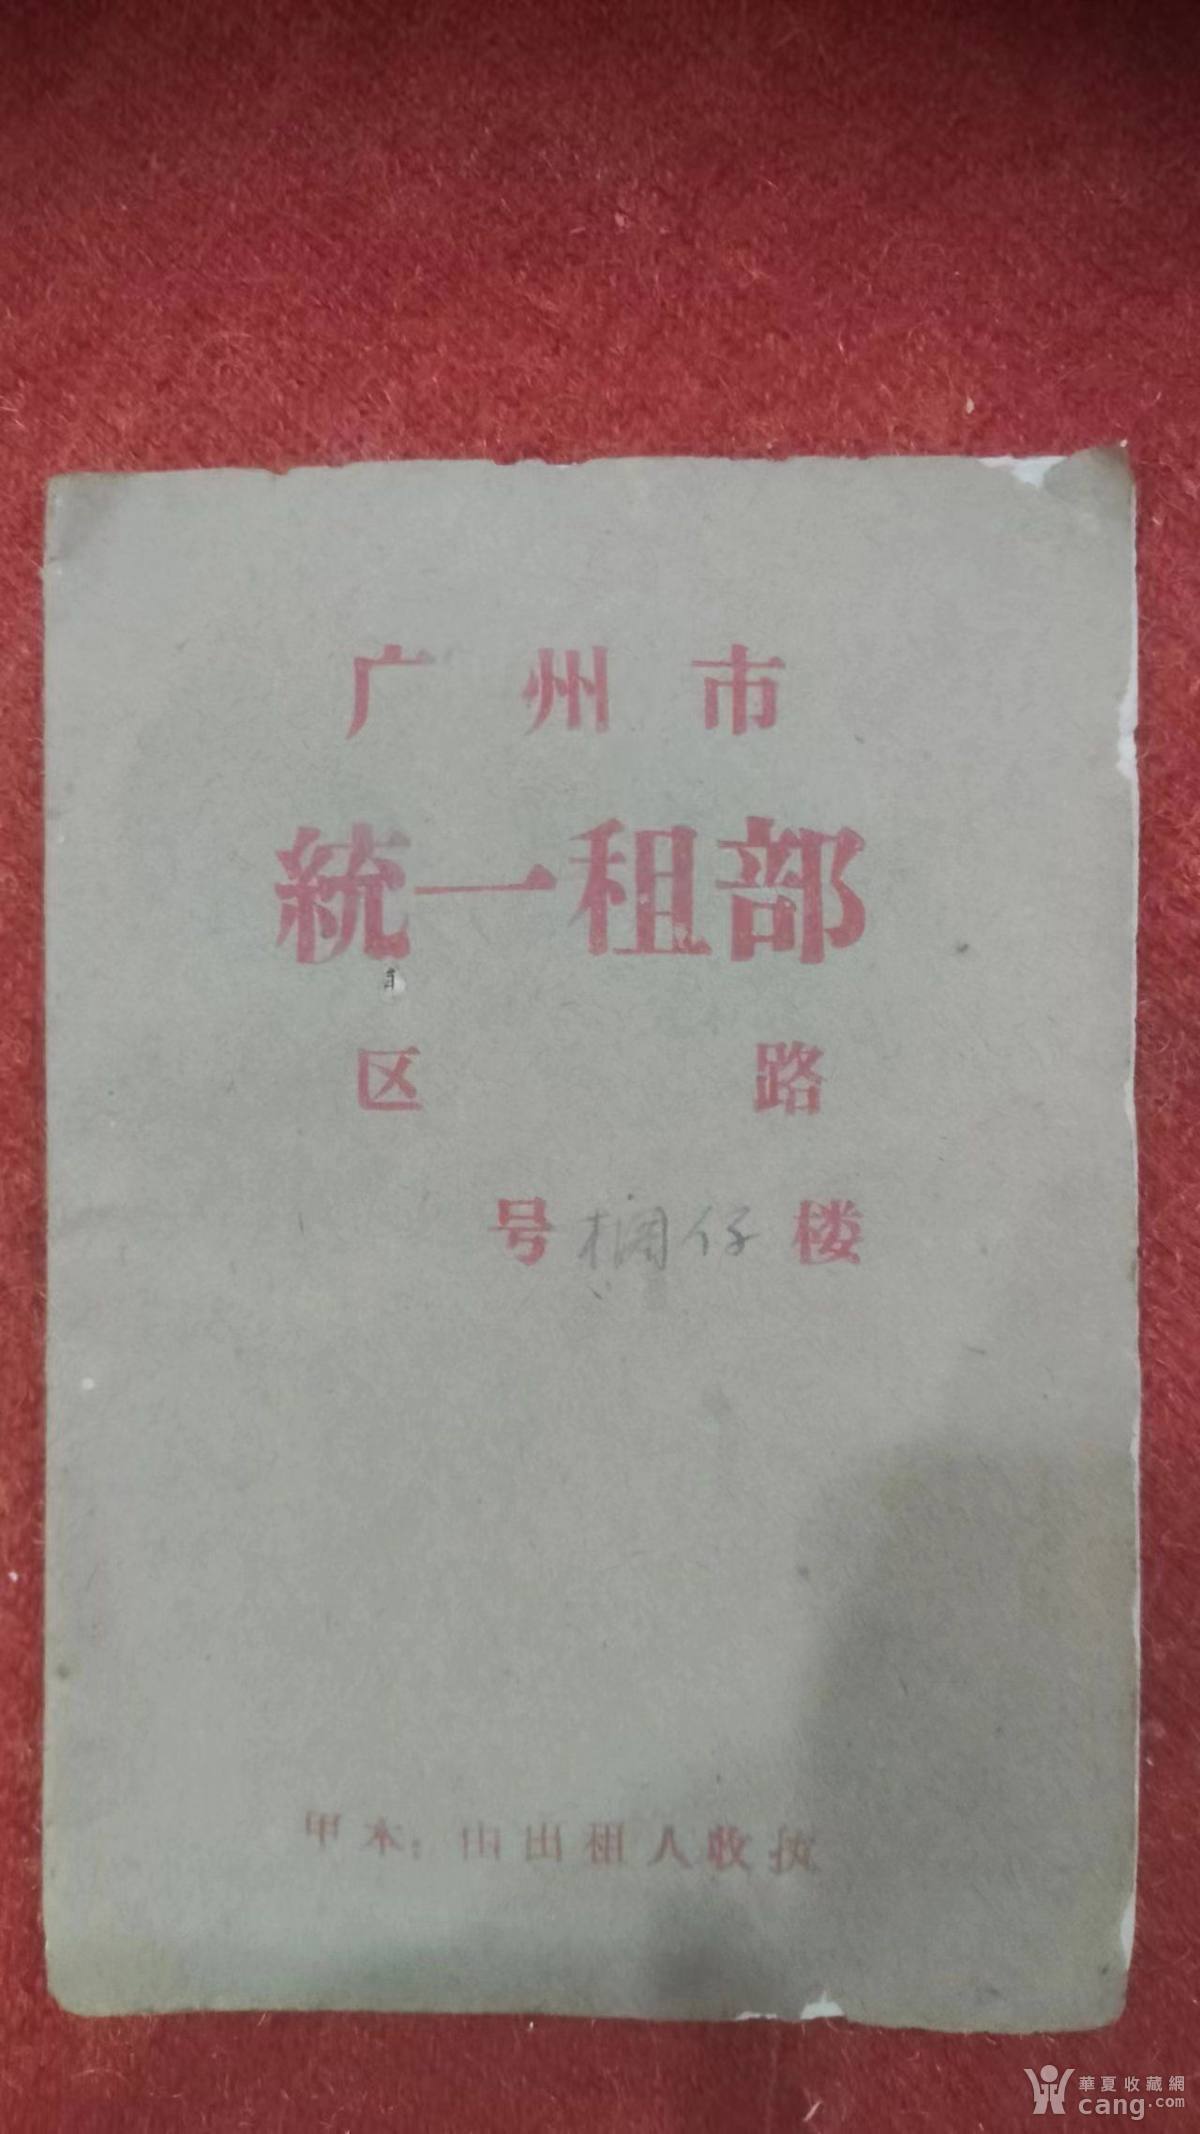 广州市
統一租部
区 路
号 楼
甲本：由出租人收执
華夏收藏網
cang.com